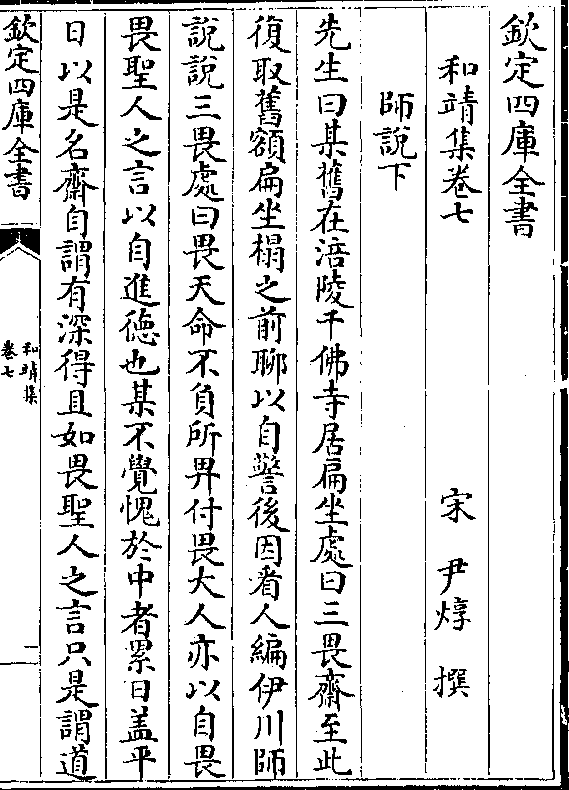 欽定四庫全書
和靖集卷七
宋 尹焞 撰
師說下
先生曰某舊在涪陵千佛寺居扁坐處曰三畏齋至此
復取舊額扁坐榻之前聊以自警後因看人編伊川師
說說三畏處曰畏天命不負所畀付畏大人亦以自畏
畏聖人之言以自進德也某不覺愧於中者累日盖平
日以是名齋自謂有深得且如畏聖人之言只是謂道
欽定四庫全書
和靖集
卷七
一